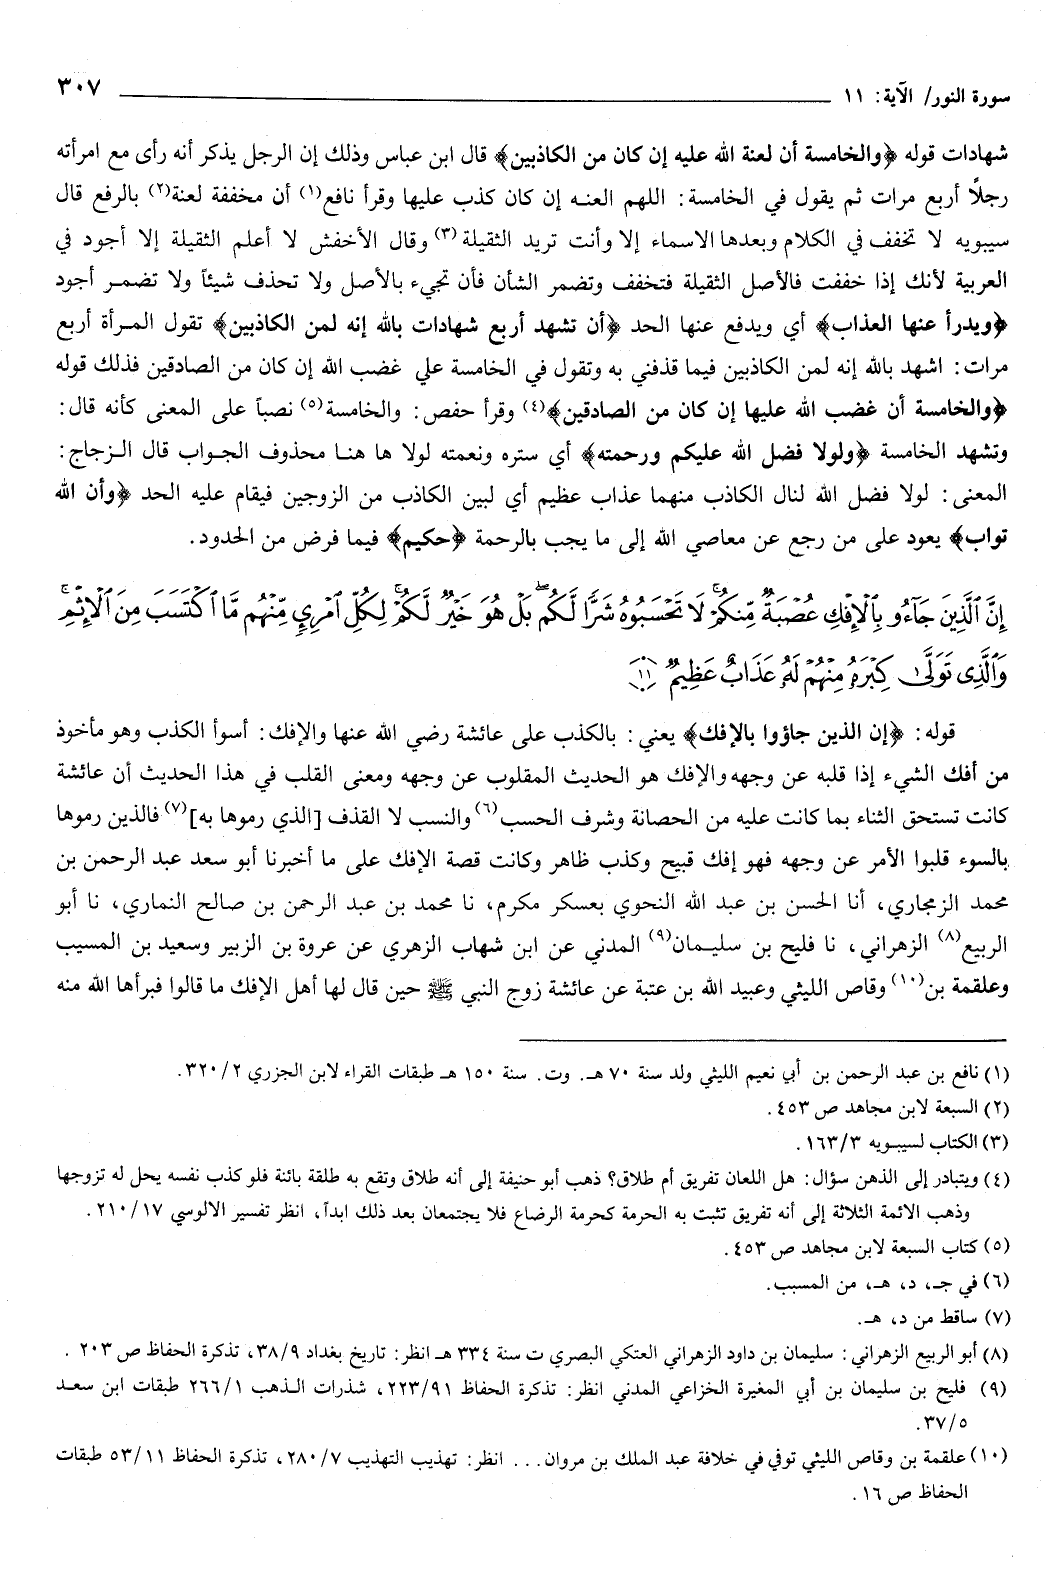 سورة النور/ الآية: ١١ ٣٠٧
شهادات قوله ﴿والخامسة أن لعنة الله عليه إن كان من الكاذبين﴾ قال ابن عباس وذلك إن الرجل يذكر أنه رأى مع امرأته
رجلاً أربع مرات ثم يقول في الخامسة: اللهم العنه إن كان كذب عليها وقرأ نافع(١) أن مخففة لعنة(٢) بالرفع قال
سيبويه لا تخفف في الكلام وبعدها الاسماء إلا وأنت تريد الثقيلة(٣) وقال الأخفش لا أعلم الثقيلة إلا أجود في
العربية لأنك إذا خففت فالأصل الثقيلة فتخفف وتضمر الشأن فأن تجيء بالأصل ولا تحذف شيئاً ولا تضمر أجود
﴿ويدرأ عنها العذاب﴾ أي ويدفع عنها الحد ﴿أن تشهد أربع شهادات بالله إنه لمن الكاذبين﴾ تقول المرأة أربع
مرات: اشهد بالله إنه لمن الكاذبين فيما قذفني به وتقول في الخامسة علي غضب الله إن كان من الصادقين فذلك قوله
﴿والخامسة أن غضب الله عليها إن كان من الصادقين﴾(٤) وقرأ حفص: والخامسة(٥) نصباً على المعنى كأنه قال:
وتشهد الخامسة ﴿ولولا فضل الله عليكم ورحمته﴾ أي ستره ونعمته لولا ها هنا محذوف الجواب قال الزجاج:
المعنى: لولا فضل الله لنال الكاذب منهما عذاب عظيم أي لبين الكاذب من الزوجين فيقام عليه الحد ﴿وأن الله
تواب﴾ يعود على من رجع عن معاصي الله إلى ما يجب بالرحمة ﴿حكيم﴾ فيما فرض من الحدود.
إِنَّ ٱلَّذِينَ جَآءُو بِٱلۡإِفۡكِ عُصۡبَةٞ مِّنكُمۡۚ لَا تَحۡسَبُوهُ شَرّٗا لَّكُمۖ بَلۡ هُوَ خَيۡرٞ لَّكُمۡۚ لِكُلِّ ٱمۡرِيٕٖ مِّنۡهُم مَّا ٱكۡتَسَبَ مِنَ ٱلۡإِثۡمِۚ
وَٱلَّذِي تَوَلَّىٰ كِبۡرَهُۥ مِنۡهُمۡ لَهُۥ عَذَابٌ عَظِيمٞ ١١
قوله: ﴿إن الذين جاؤوا بالإفك﴾ يعني: بالكذب على عائشة رضي الله عنها والإفك: أسوأ الكذب وهو مأخوذ
من أفك الشيء إذا قلبه عن وجهه والإفك هو الحديث المقلوب عن وجهه ومعنى القلب في هذا الحديث أن عائشة
كانت تستحق الثناء بما كانت عليه من الحصانة وشرف الحسب(٦) والنسب لا القذف [الذي رموها به](٧) فالذين رموها
بالسوء قلبوا الأمر عن وجهه فهو إفك قبيح وكذب ظاهر وكانت قصة الإفك على ما أخبرنا أبو سعد عبد الرحمن بن
محمد الزمجاري، أنا الحسن بن عبد الله النحوي بعسكر مكرم، نا محمد بن عبد الرحمن بن صالح النماري، نا أبو
الربيع(٨) الزهراني، نا فليح بن سليمان(٩) المدني عن ابن شهاب الزهري عن عروة بن الزبير وسعيد بن المسيب
وعلقمة بن(١٠) وقاص الليثي وعبيد الله بن عتبة عن عائشة زوج النبي ﷺ حين قال لها أهل الإفك ما قالوا فبرأها الله منه
(١) نافع بن عبد الرحمن بن أبي نعيم الليثي ولد سنة ٧٠ هـ. وت. سنة ١٥٠ هـ طبقات القراء لابن الجزري ٣٢٠/٢.
(٢) السبعة لابن مجاهد ص ٤٥٣.
(٣) الكتاب لسيبويه ١٦٣/٣.
(٤) ويتبادر إلى الذهن سؤال: هل اللعان تفريق أم طلاق؟ ذهب أبو حنيفة إلى أنه طلاق وتقع به طلقة بائنة فلو كذب نفسه يحل له تزوجها
وذهب الائمة الثلاثة إلى أنه تفريق تثبت به الحرمة كحرمة الرضاع فلا يجتمعان بعد ذلك ابداً، انظر تفسير الالوسي ٢١٠/١٧.
(٥) كتاب السبعة لابن مجاهد ص ٤٥٣.
(٦) في جـ، د، هـ، من المسبب.
(٧) ساقط من د، هـ.
(٨) أبو الربيع الزهراني: سليمان بن داود الزهراني العتكي البصري ت سنة ٣٣٤ هـ انظر: تاريخ بغداد ٣٨/٩، تذكرة الحفاظ ص ٢٠٣.
(٩) فليح بن سليمان بن أبي المغيرة الخزاعي المدني انظر: تذكرة الحفاظ ٢٢٣/٩١، شذرات الذهب ٢٦٦/١ طبقات ابن سعد
٣٧/٥.
(١٠) علقمة بن وقاص الليثي توفي في خلافة عبد الملك بن مروان... انظر: تهذيب التهذيب ٢٨٠/٧، تذكرة الحفاظ ٥٣/١١ طبقات
الحفاظ ص ١٦.